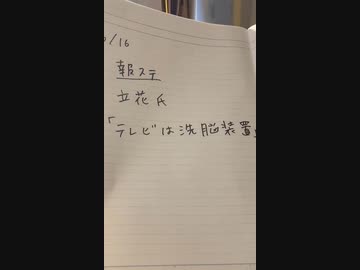 /16
報ステ
立花氏
「テレビは洗脳装置